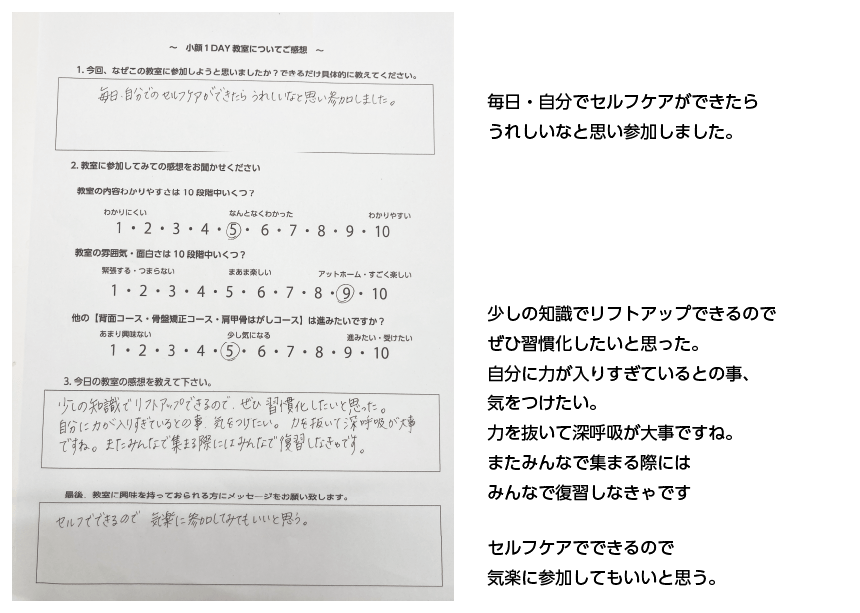 ～ 小顔１DAY 教室についてご感想 ～
1. 今回、なぜこの教室に参加しようと思いましたか？できるだけ具体的に教えてください。
毎日・自分でのセルフケアができたら うれしいなと思い参加しました。
2. 教室に参加してみての感想をお聞かせください
教室の内容わかりやすさは 10 段階中いくつ？
わかりにくい なんとなくわかった わかりやすい
1・2・3・4・5・6・7・8・9・10
教室の雰囲気・面白さは 10 段階中いくつ？
緊張する・つまらない まあま楽しい アットホーム・すごく楽しい
1・2・3・4・5・6・7・8・9・10
他の【背面コース・骨盤矯正コース・肩甲骨はがしコース】は進みたいですか？
あまり興味ない 少し気になる 進みたい・受けたい
1・2・3・4・5・6・7・8・9・10
3. 今日の教室の感想を教えて下さい。
少しの知識でリフトアップできるので、ぜひ 習慣化したいと思った。
自分に力が入りすぎているとの事、気をつけたい。力を抜いて深呼吸が大事
ですね。またみんなで集まる際にはみんなで復習しなきゃです。
最後、教室に興味を持っておられる方にメッセージをお願い致します。
セルフでできるので 気楽に参加してみてもいいと思う。
毎日・自分でセルフケアができたら
うれしいなと思い参加しました。
少しの知識でリフトアップできるので
ぜひ習慣化したいと思った。
自分に力が入りすぎているとの事、
気をつけたい。
力を抜いて深呼吸が大事ですね。
またみんなで集まる際には
みんなで復習しなきゃです
セルフケアでできるので
気楽に参加してもいいと思う。